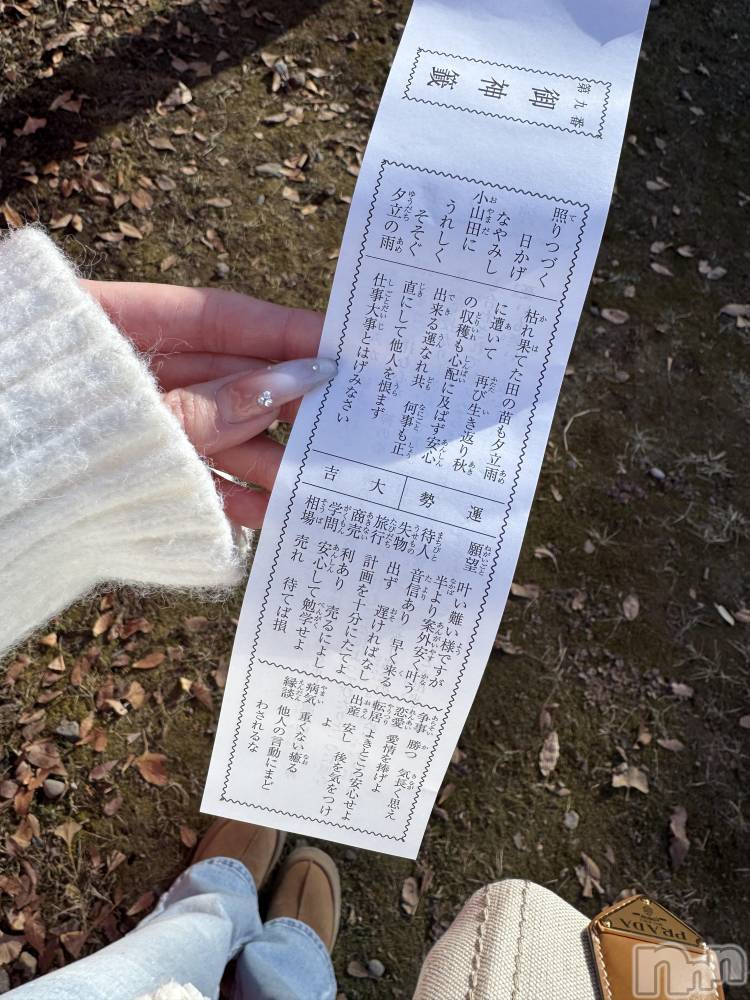 第九番
御神籤
照りつづく
日かげ
なやみし
小山田に
うれしく
そそぐ
夕立の雨
枯れ果てた田の苗も夕立雨
に遭いて 再び生き返り秋
の収穫も心配に及ばず安心
出来る運なれ共 何事も正
直にして他人を恨まず
仕事大事とはげみなさい
運勢 大吉
願望 叶い難い様ですが
半より案外安く叶う
待人 音信あり 早く来る
失物 出ず 遅ければなし
旅行 計画を十分にたてよ
商売 利あり 売るによし
学問 安心して勉学せよ
相場 売れ 待てば損
争事 勝つ 気長く思え
恋愛 愛情を捧げよ
転居 よきところ安心せよ
出産 安し 後を気をつけ
よ
病気 重くない 癒る
縁談 他人の言動にまど
わされるな
PRADA